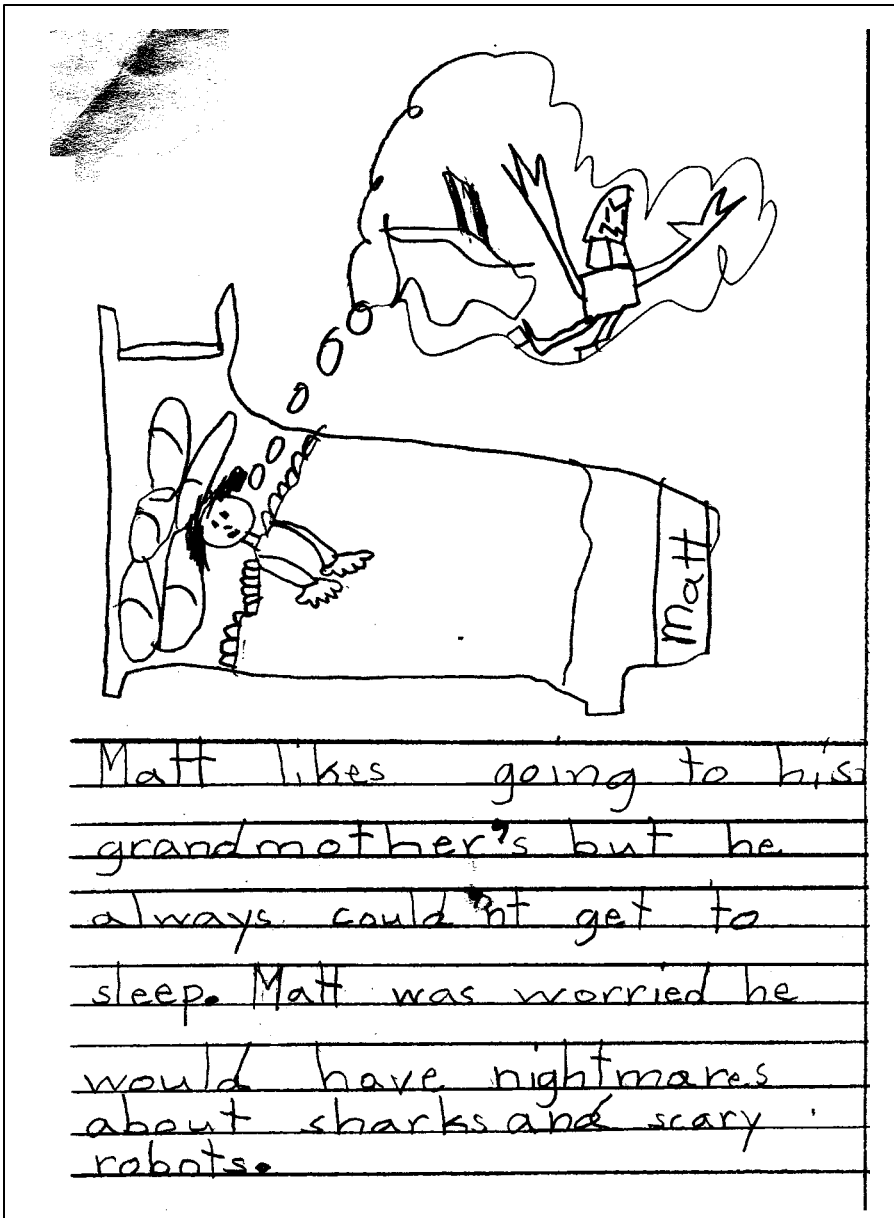 Matt
Matt likes going to his
grandmother's but he
always could'nt get to
sleep. Matt was worried he
would have nightmares
about sharks and scary
robots.